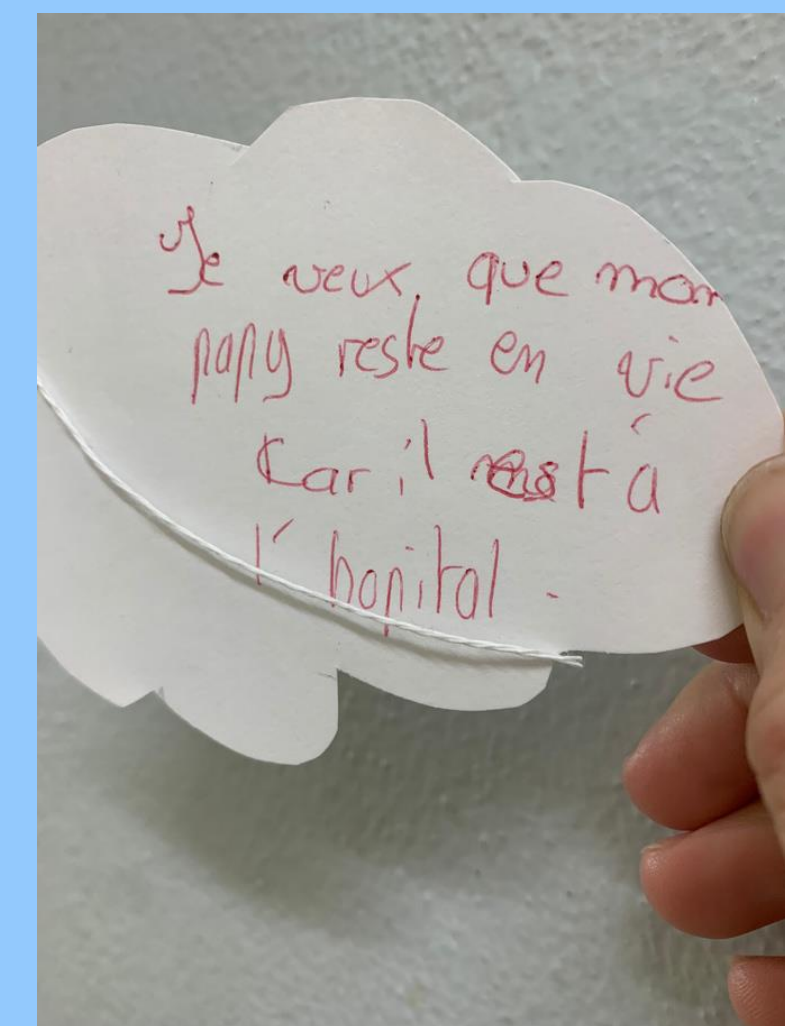 Je veux, que mon
papy reste en vie
Car il est à
l'hopital.